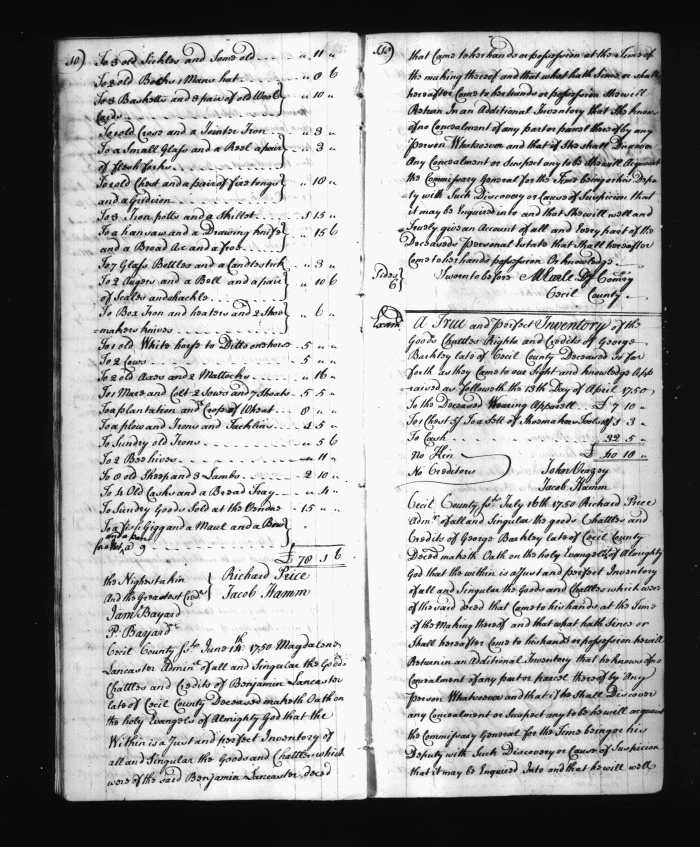 10)
To 3 old Sickles and Some old .... " 11 "
To 2 old Bells 1 Mans hat .... " 8 6
To 3 Basketts and 3 pair of old Wool " 10 "
Cards
To 1 old Cross and a Jointer Iron .... " 3 "
To a Small Glass and a Reel a pair " 3 "
of flesh forks
To 1 old Chest and a pair of fire tongs " 18 "
and a Gridiron
To 3 Iron potts and a Skillet .... 1 15 "
To a hansaw and a Drawing knife " 15 6
and a Broad Ax and a froe
To 7 Glass Bottles and a Candlestick .. " 3 "
To 2 Augers and a Bell and a pair " 10 6
of Scales and shackle
To Box Iron and heaters and 2 Shoe " 6 "
makers knives
To 1 old White horse to Ditto one horse . 5 " "
To 2 Cows .... 5 " "
To 2 old Axes and 2 Mattocks .. " 16 "
To 1 Mare and Colt 2 Sows and 7 Shoats . 5 5 "
To a plantation and Crop of Wheat 8 " "
To a plow and Irons and Tacklins .. 2 5 "
To Sundry old Irons .... " 5 6
To 2 Bee hives .... " 11 "
To 8 old Sheep and 3 Lambs .. 2 10 "
To 4 Old Casks and a Bread Tray .. " 4 "
To Sundry Goods Sold at the Vendue . 15 " "
To a fish Gigg and a Maul and a Bow
and a pair
£ 78 1 6
the Nighest a kin Richard Price
And the Greatest Credrs Jacob Hamm
Jam Bayard
P. Bayard
Cecil County sct. June 14th 1750 Magdalene
Lancaster Adminx of all and Singular the Goods
Chattles and Credits of Benjamin Lancaster
late of Cecil County Deceased maketh Oath on
the holy Evangels of Almighty God that the
Within is a Just and perfect Inventory of
all and Singular the Goods and Chattles which
were of the said Benjamin Lancaster deced
that Came to her hands or possession at the Time of
the making thereof and that what hath Since or shall
hereafter Come to her hands or possession She will
Return In an Additional Inventory that She knows
of no Concealment of any part or parcel thereof by any
person Whatsoever and that if She shall Discover
Any Concealment or Suspect any to be She will Acquaint
the Commissary General for the Time being or his Depu
ty with Such Discovery or Cause of Suspicion that
it may be Enquired into and that She will well and
Truely give an Account of all and Every part of the
Deceaseds personal Estate that Shall hereafter
Come to her hands possession Or knowledge
Sides 6 Sworn before M Earle Dy Comry
Cecil County
Examd
A True and perfect Inventory of the
Goods Chattles Rights and Credits of George
Barkley late of Cecil County Deceased So far
forth as they Came to our Sight and knowledge App
raised as followeth the 13th Day of April 1750
To the Deceased Wearing Apparell .. £ 7 10 "
To 1 Chest 5/ To a Sett of Shoemakers Tools 1 3 3 "
To Cash .... 32 5 "
£ 40 10 "
No Kin
No Creditors John Veazey
Jacob Hamm
Cecil County sct. July 16th 1750 Richard Price
Admr of all and Singular the goods Chattles and
Credits of George Barkley late of Cecil County
Deced maketh Oath on the holy Evangels of Almighty
God that the within is a Just and perfect Inventory
of all and Singular the Goods and Chattles which were
of the said deced that Came to his hands at the Time
of the Making thereof and that what hath Since or
Shall hereafter Come to his hands or possession he will
Return in an Additional Inventory that he knows of no
Concealment of any part or parcel thereof by Any
person Whatsoever and that if he Shall Discover
any Concealment or Suspect any to be he will acquaint
the Commissary General for the Time being or his
Deputy with Such Discovery or Cause of Suspicion
that it may be Enquired Into and that he will well